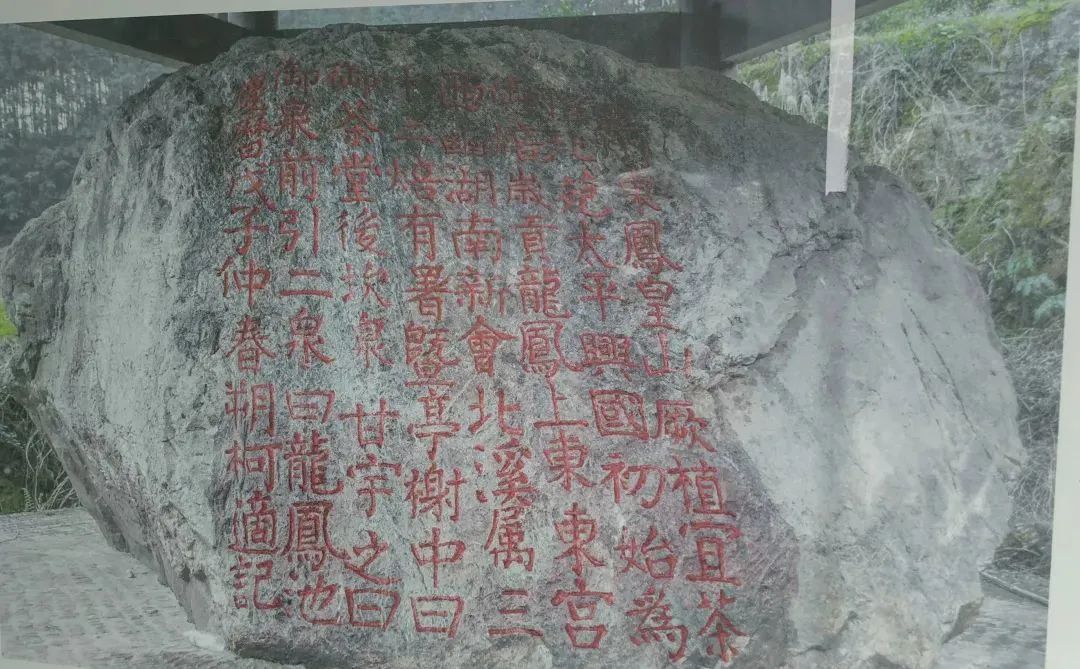 東鳳皇山厥植宜茶
北苑太平興國初始為
焙歲貢龍鳳上東東宮
西幽湖南新會北溪属三
十二焙有署暨亭榭中曰
御茶堂後坎泉甘宇之曰
御泉前引二泉曰龍鳳池
慶曆戊子仲春朔柯適記